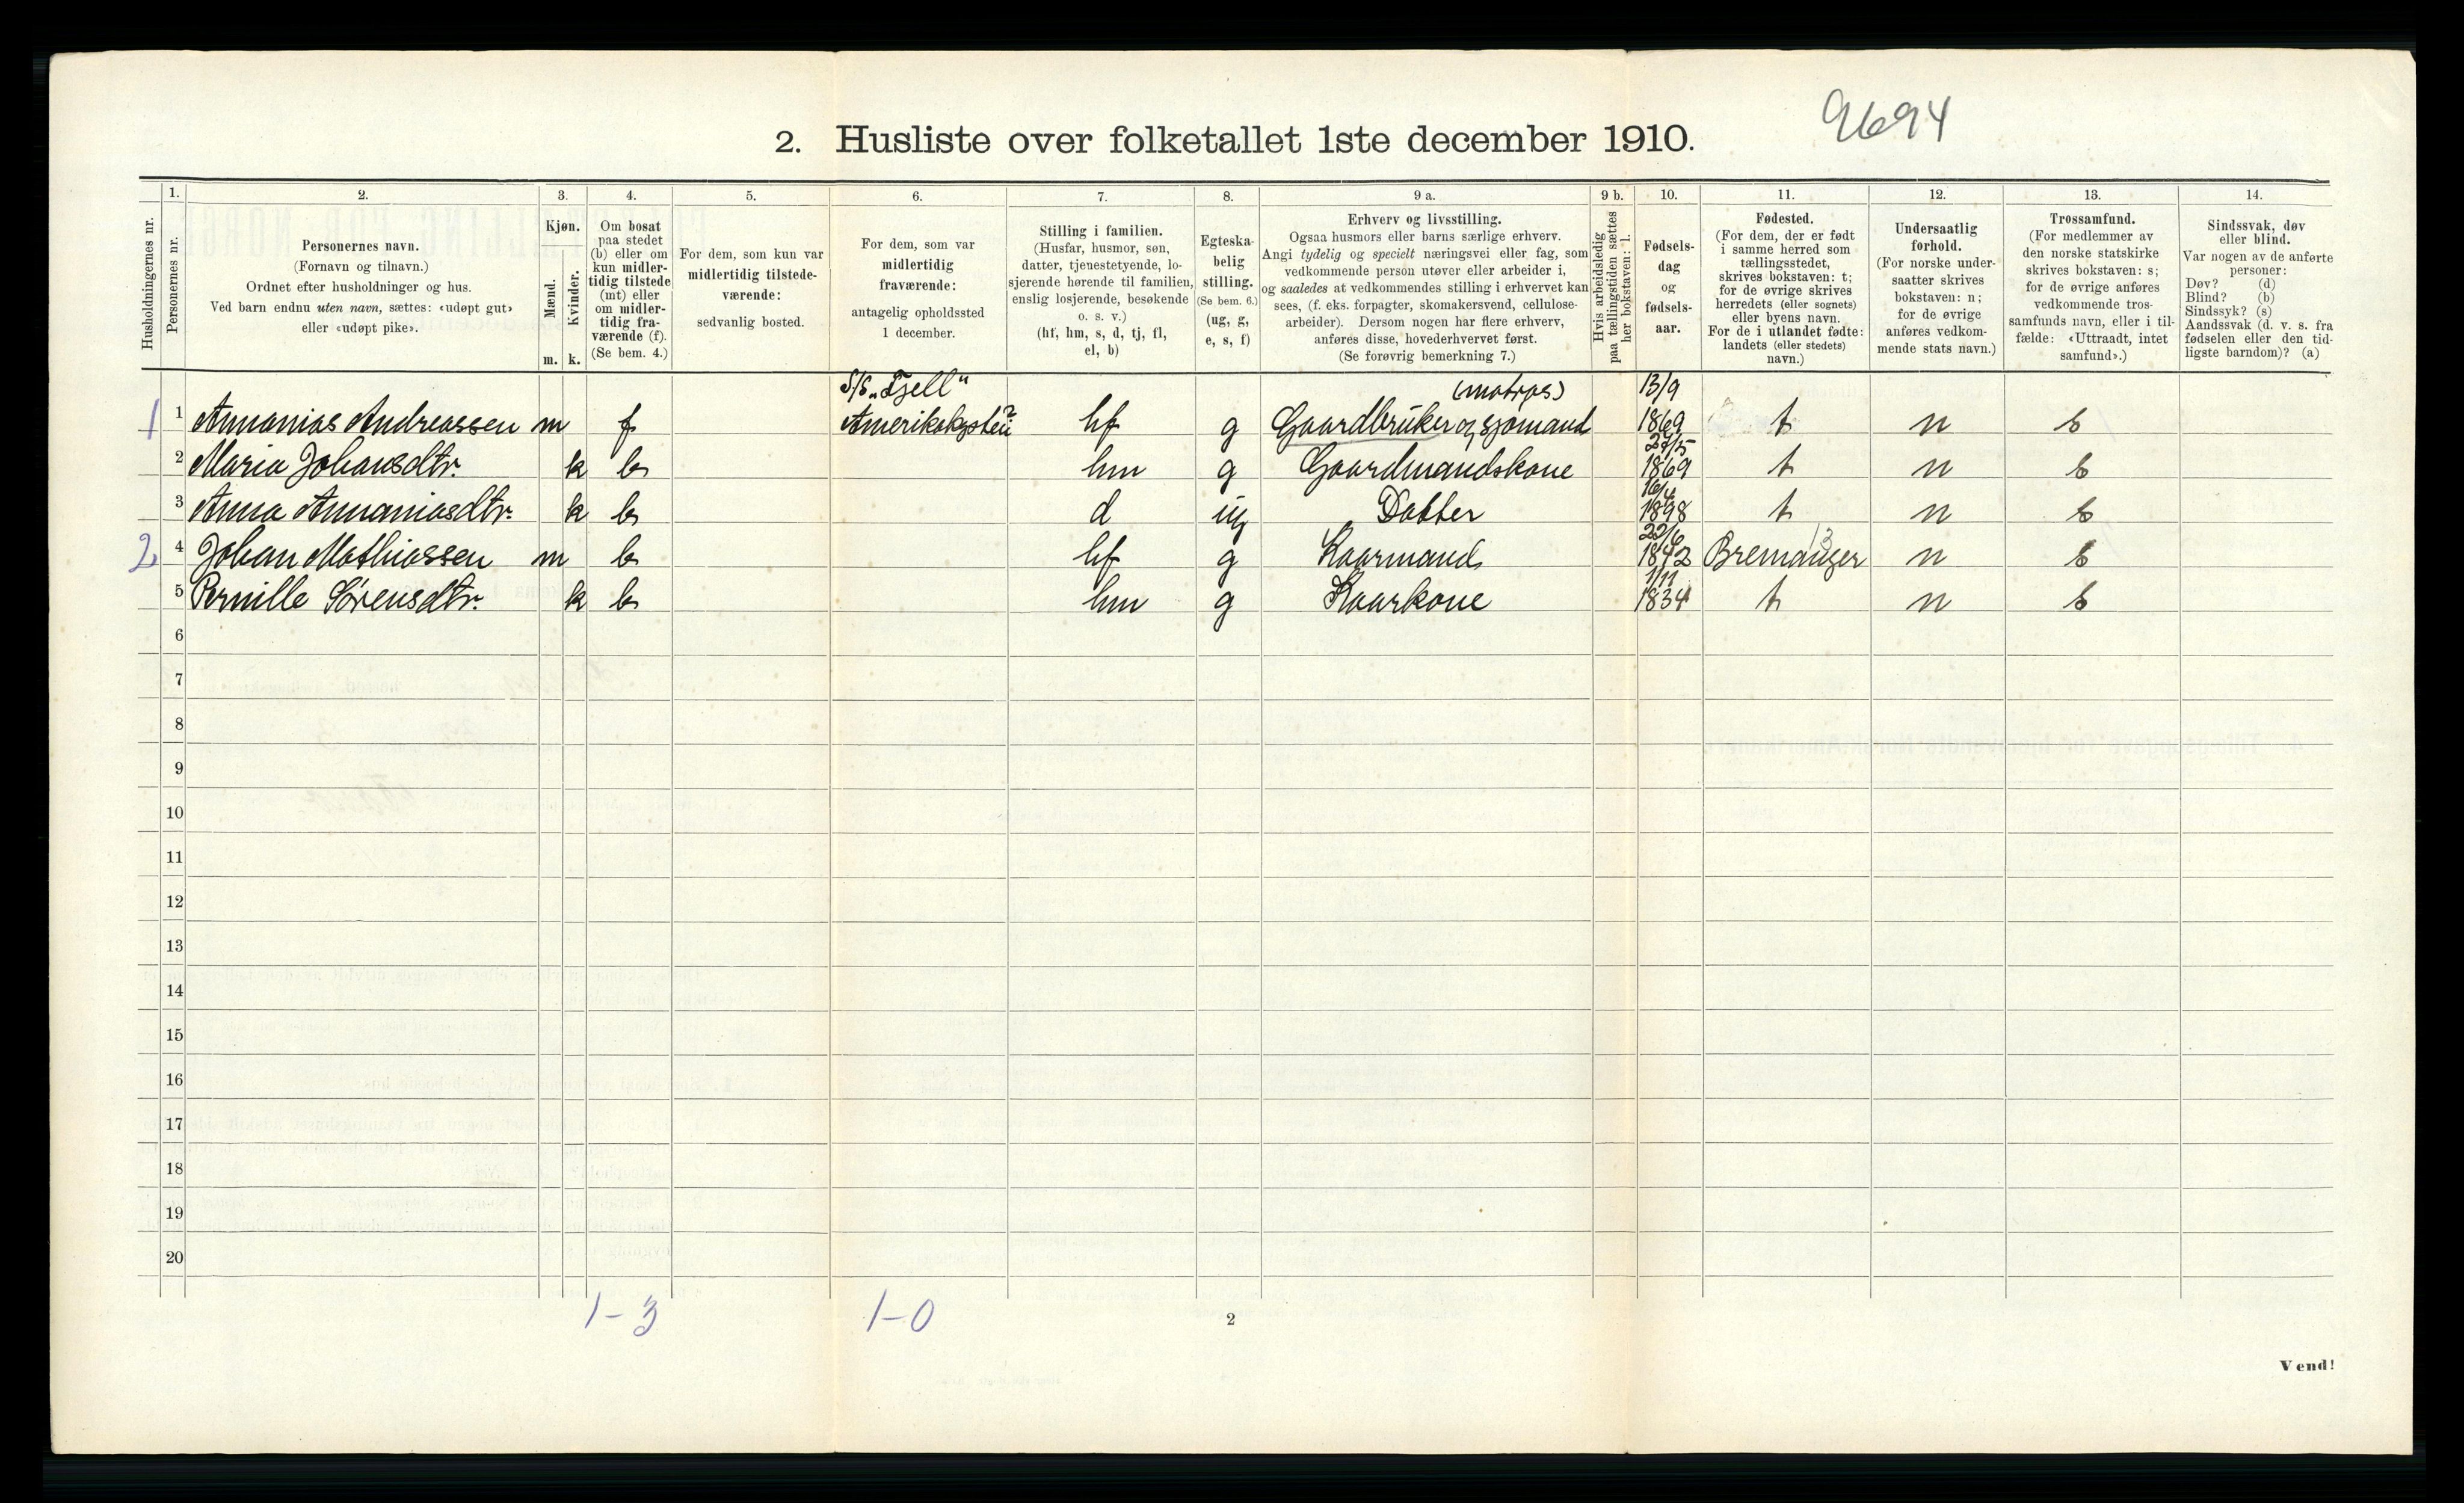 9694
2. Husliste over folketallet 1ste december 1910.
Husholdningernes nr.
1.
Personernes nr.
2.
Personernes navn.
(Fornavn og tilnavn.)
Ordnet efter husholdninger og hus.
Ved barn endnu uten navn, sættes: «udøpt gut»
eller «udøpt pike».
3.
Kjøn.
Mænd.
m.
Kvinder.
k.
4.
Om bosat
paa stedet
(b) eller om
kun midler-
tidig tilstede
(mt) eller
om midler-
tidig fra-
værende (f).
(Se bem. 4.)
5.
For dem, som kun var
midlertidig tilstede-
værende:
sedvanlig bosted.
6.
For dem, som var
midlertidig
fraværende:
antagelig opholdssted
1 december.
7.
Stilling i familien.
(Husfar, husmor, søn,
datter, tjenestetyende, lo-
sjerende hørende til familien,
enslig losjerende, besøkende
o. s. v.)
(hf, hm, s, d, tj, fl,
el, b)
8.
Egteska-
belig
stilling.
(Se bem. 6.)
(ug, g,
e, s, f)
9 a.
Erhverv og livsstilling.
Ogsaa husmors eller barns særlige erhverv.
Angi tydelig og specielt næringsvei eller fag, som
vedkommende person utøver eller arbeider i,
og saaledes at vedkommendes stilling i erhvervet kan
sees, (f. eks. forpagter, skomakersvend, cellulose-
arbeider). Dersom nogen har flere erhverv,
anføres disse, hovederhvervet først.
(Se forøvrig bemerkning 7.)
9 b.
Hvis arbeidsledig
paa tællingstiden sættes
her bokstaven: l.
10.
Fødsels-
dag
og
fødsels-
aar.
11.
Fødested.
(For dem, der er født
i samme herred som
tællingsstedet,
skrives bokstaven: t;
for de øvrige skrives
herredets (eller sognets)
eller byens navn.
For de i utlandet fødte:
landets (eller stedets)
navn.)
12.
Undersaatlig
forhold.
(For norske under-
saatter skrives
bokstaven: n;
for de øvrige
anføres vedkom-
mende stats navn.)
13.
Trossamfund.
(For medlemmer av
den norske statskirke
skrives bokstaven: s;
for de øvrige anføres
vedkommende tros-
samfunds navn, eller i til-
fælde: «Uttraadt, intet
samfund».)
14.
Sindssvak, døv
eller blind.
Var nogen av de anførte
personer:
Døv? (d)
Blind? (b)
Sindssyk? (s)
Aandssvak (d. v. s. fra
fødselen eller den tid-
ligste barndom)? (a)
S/S „Fjell" (matros) 13/9
1 1 Annanias Andreassen m f Amerikakysten? hf g Gaardbruker og sjømand 1869 t n s
27/5
2 Maria Johansdtr. k b hm g Gaardmandskone 1869 t n s
16/4
3 Anna Annaniasdtr. k b d ug Datter 1898 t n s
22/6 13
2 4 Johan Mathiassen m b hf g Kaarmand 1842 Bremanger n s
1/11
5 Pernille Sørensdtr. k b hm g Kaarkone 1834 t n s
6
7
8
9
10
11
12
13
14
15
16
17
18
19
20
1-3 1-0
2
Vend!